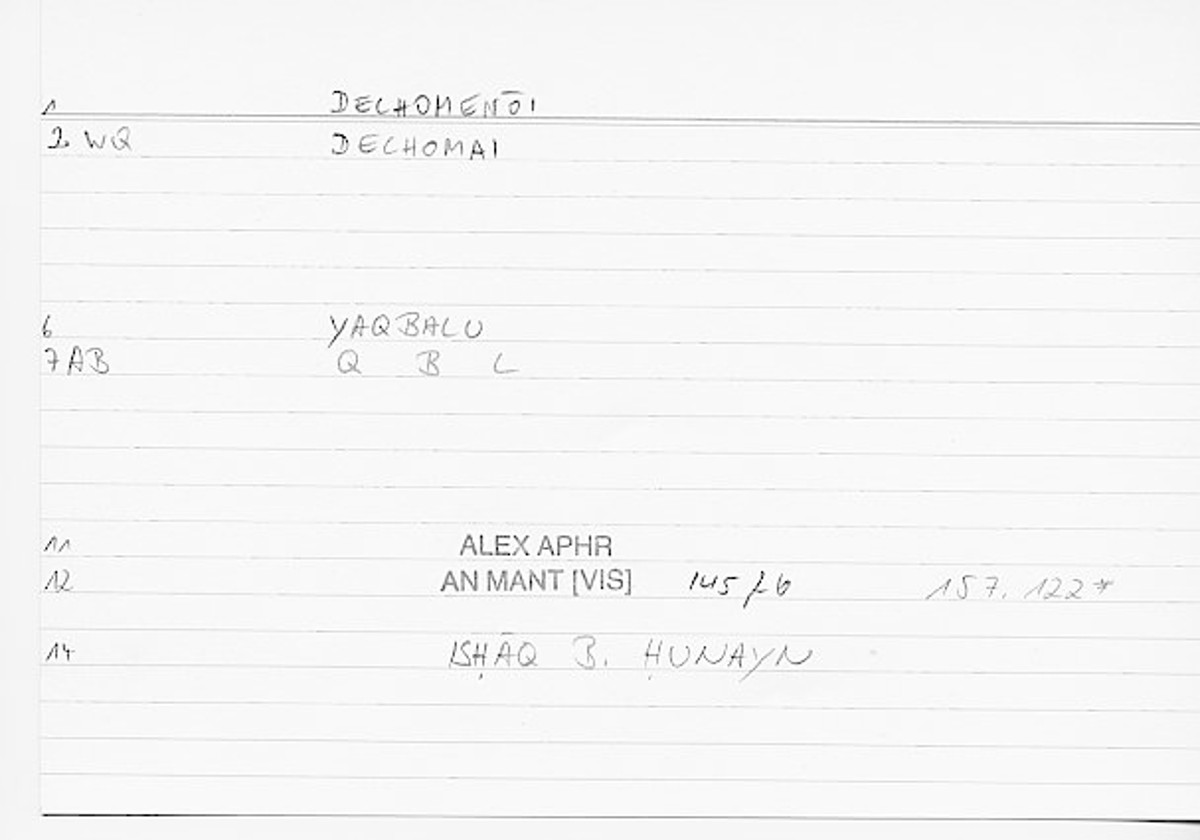 1 DECHOMENŌI
2 WQ DECHOMAI
6 YAQBALU
7 AB Q B L
11 ALEX APHR
12 AN MANT [VIS] 145 157.122*
14 ISḤĀQ B. ḤUNAYN